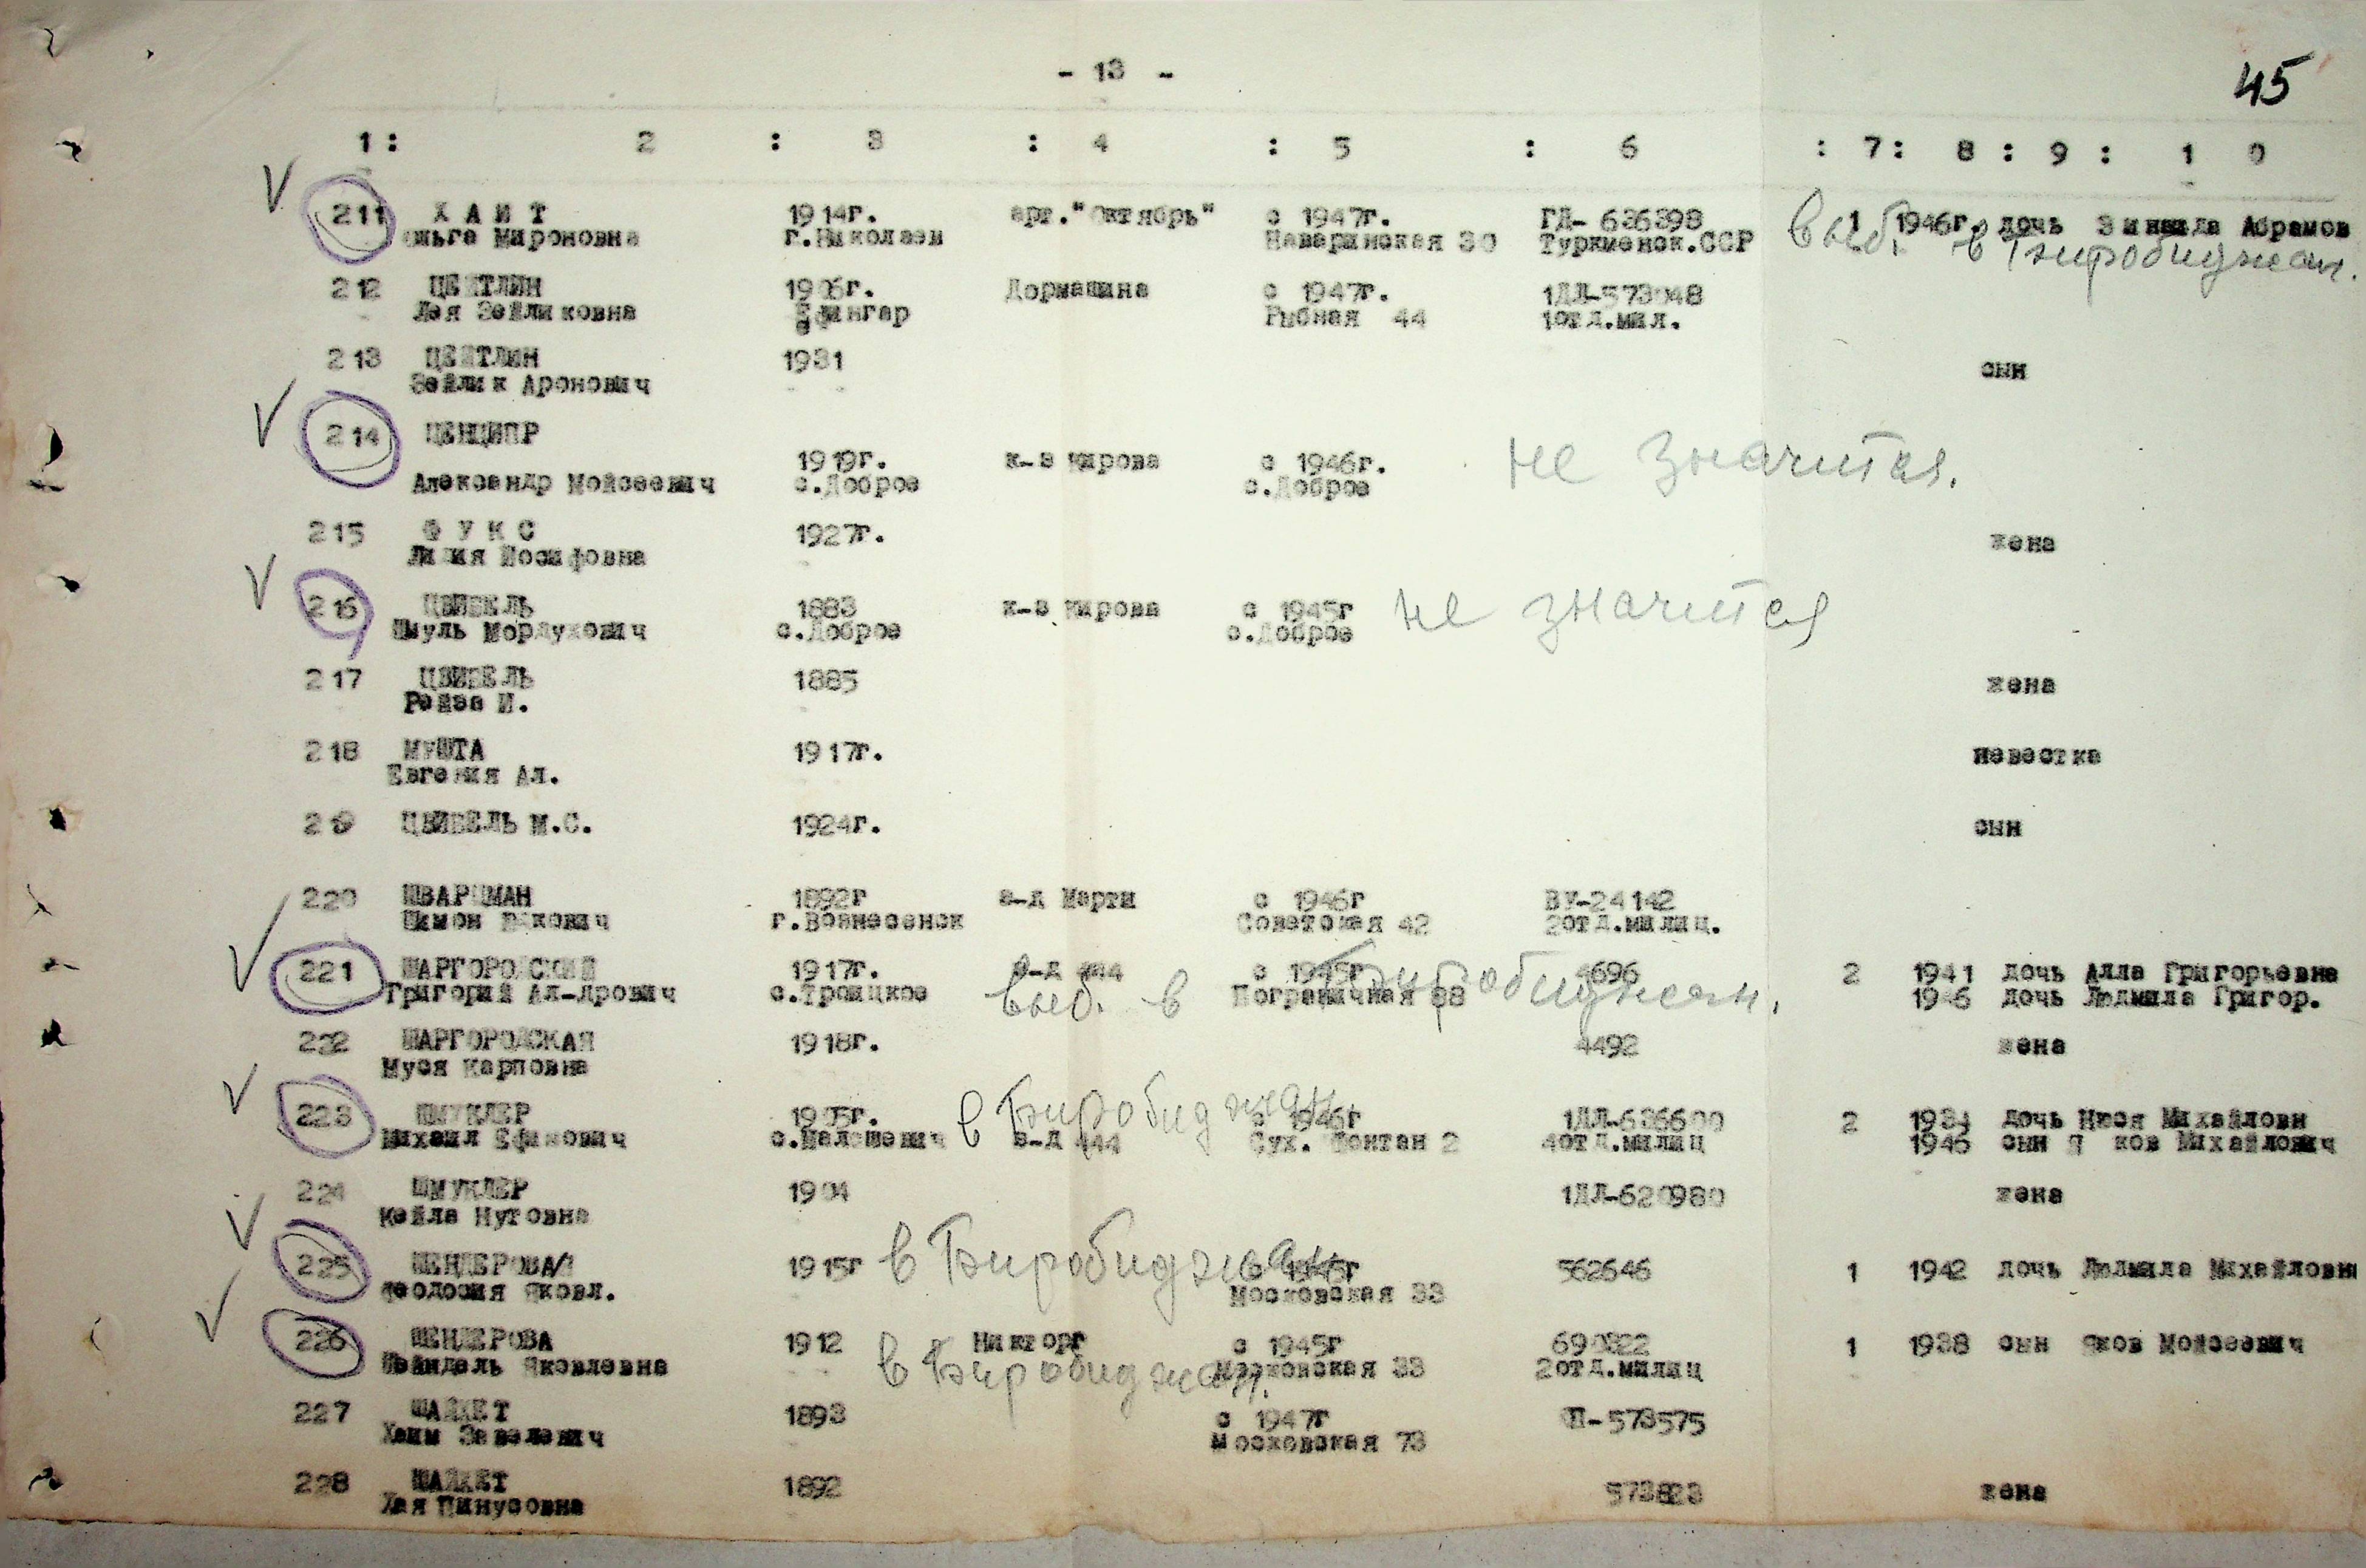 - 13 -
45
1 : 2 : 3 : 4 : 5 : 6 : 7 : 8 : 9 : 1 0
211 Х А И Т 1914г. арт."Октябрь" с 1947г. ГД- 636398 1 1946г. дочь Абрамов
Ольга Мироновна г.Николаев Наваринская 30 Туркменск.ССР выб. в Биробиджан.
212 ЦЕЙТЛИН 1906г. Дормашина с 1947г. 1ДЛ-573048
Лея Зейликовна Рыбная 44 1отд.мил.
213 ЦЕЙТЛИН 1931 сын
Зейлик Аронович
214 ЦЕНЦИПР
1919г. к-з Кирова с 1946г. не значится.
Александр Мойсеевич с.Доброе с.Доброе
215 Ф У К С 1927г. жена
Лидия Иосифовна
216 ЦВИБЕЛЬ 1883 к-з Кирова с 1945г не значится
Шмуль Мордухович с.Доброе с.Доброе
217 ЦВИБЕЛЬ 1885 жена
Рейза И.
218 МУШТА 1917г. невестка
Евгения Ал.
219 ЦВИБЕЛЬ М.С. 1924г. сын
220 ШВАРЦМАН 1892г з-д Марти с 1946г ВУ-24142
Шимон г.Вознесенск Советская 42 2отд.милиц.
221 ШАРГОРОДСКИЙ 1917г. з-д 444 с 1945г 4696 2 1941 дочь Алла Григорьевна
Григорий Ал-дрович с.Троицкое выб. в Биробиджан. Пограничная 1946 дочь Людмила Григор.
222 ШАРГОРОДСКАЯ 1918г. 4492 жена
Муся Карповна
223 ШМУКЛЕР 1905г. в Биробиджан с 1946г 1ДЛ-636600 2 1931 дочь Нюся Михайловн
Михаил Ефимович з-д 444 Сух. Фонтан 2 4отд.милиц 1946 сын Я ков Михайлович
224 ШМУКЛЕР 1904 1ДЛ-620980 жена
Кейла Нутовна
225 ШЕНДЕРОВА 1915г в Биробиджан 562646 1 1942 дочь Людмила Михайловн
Феодосия Яковл. Московская 33
226 ШЕНДЕРОВА 1912 Никторг с 1945г 690322 1 1938 сын Яков Мойсеевич
Шейндель Яковлевна в Биробиджан. Московская 33 2отд.милиц
227 ШАЙКЕТ 1893 с 1947г 573575
Хаим Завелевич Московская 73
228 ШАЙКЕТ 1892 573823 жена
Хая Пинусовна